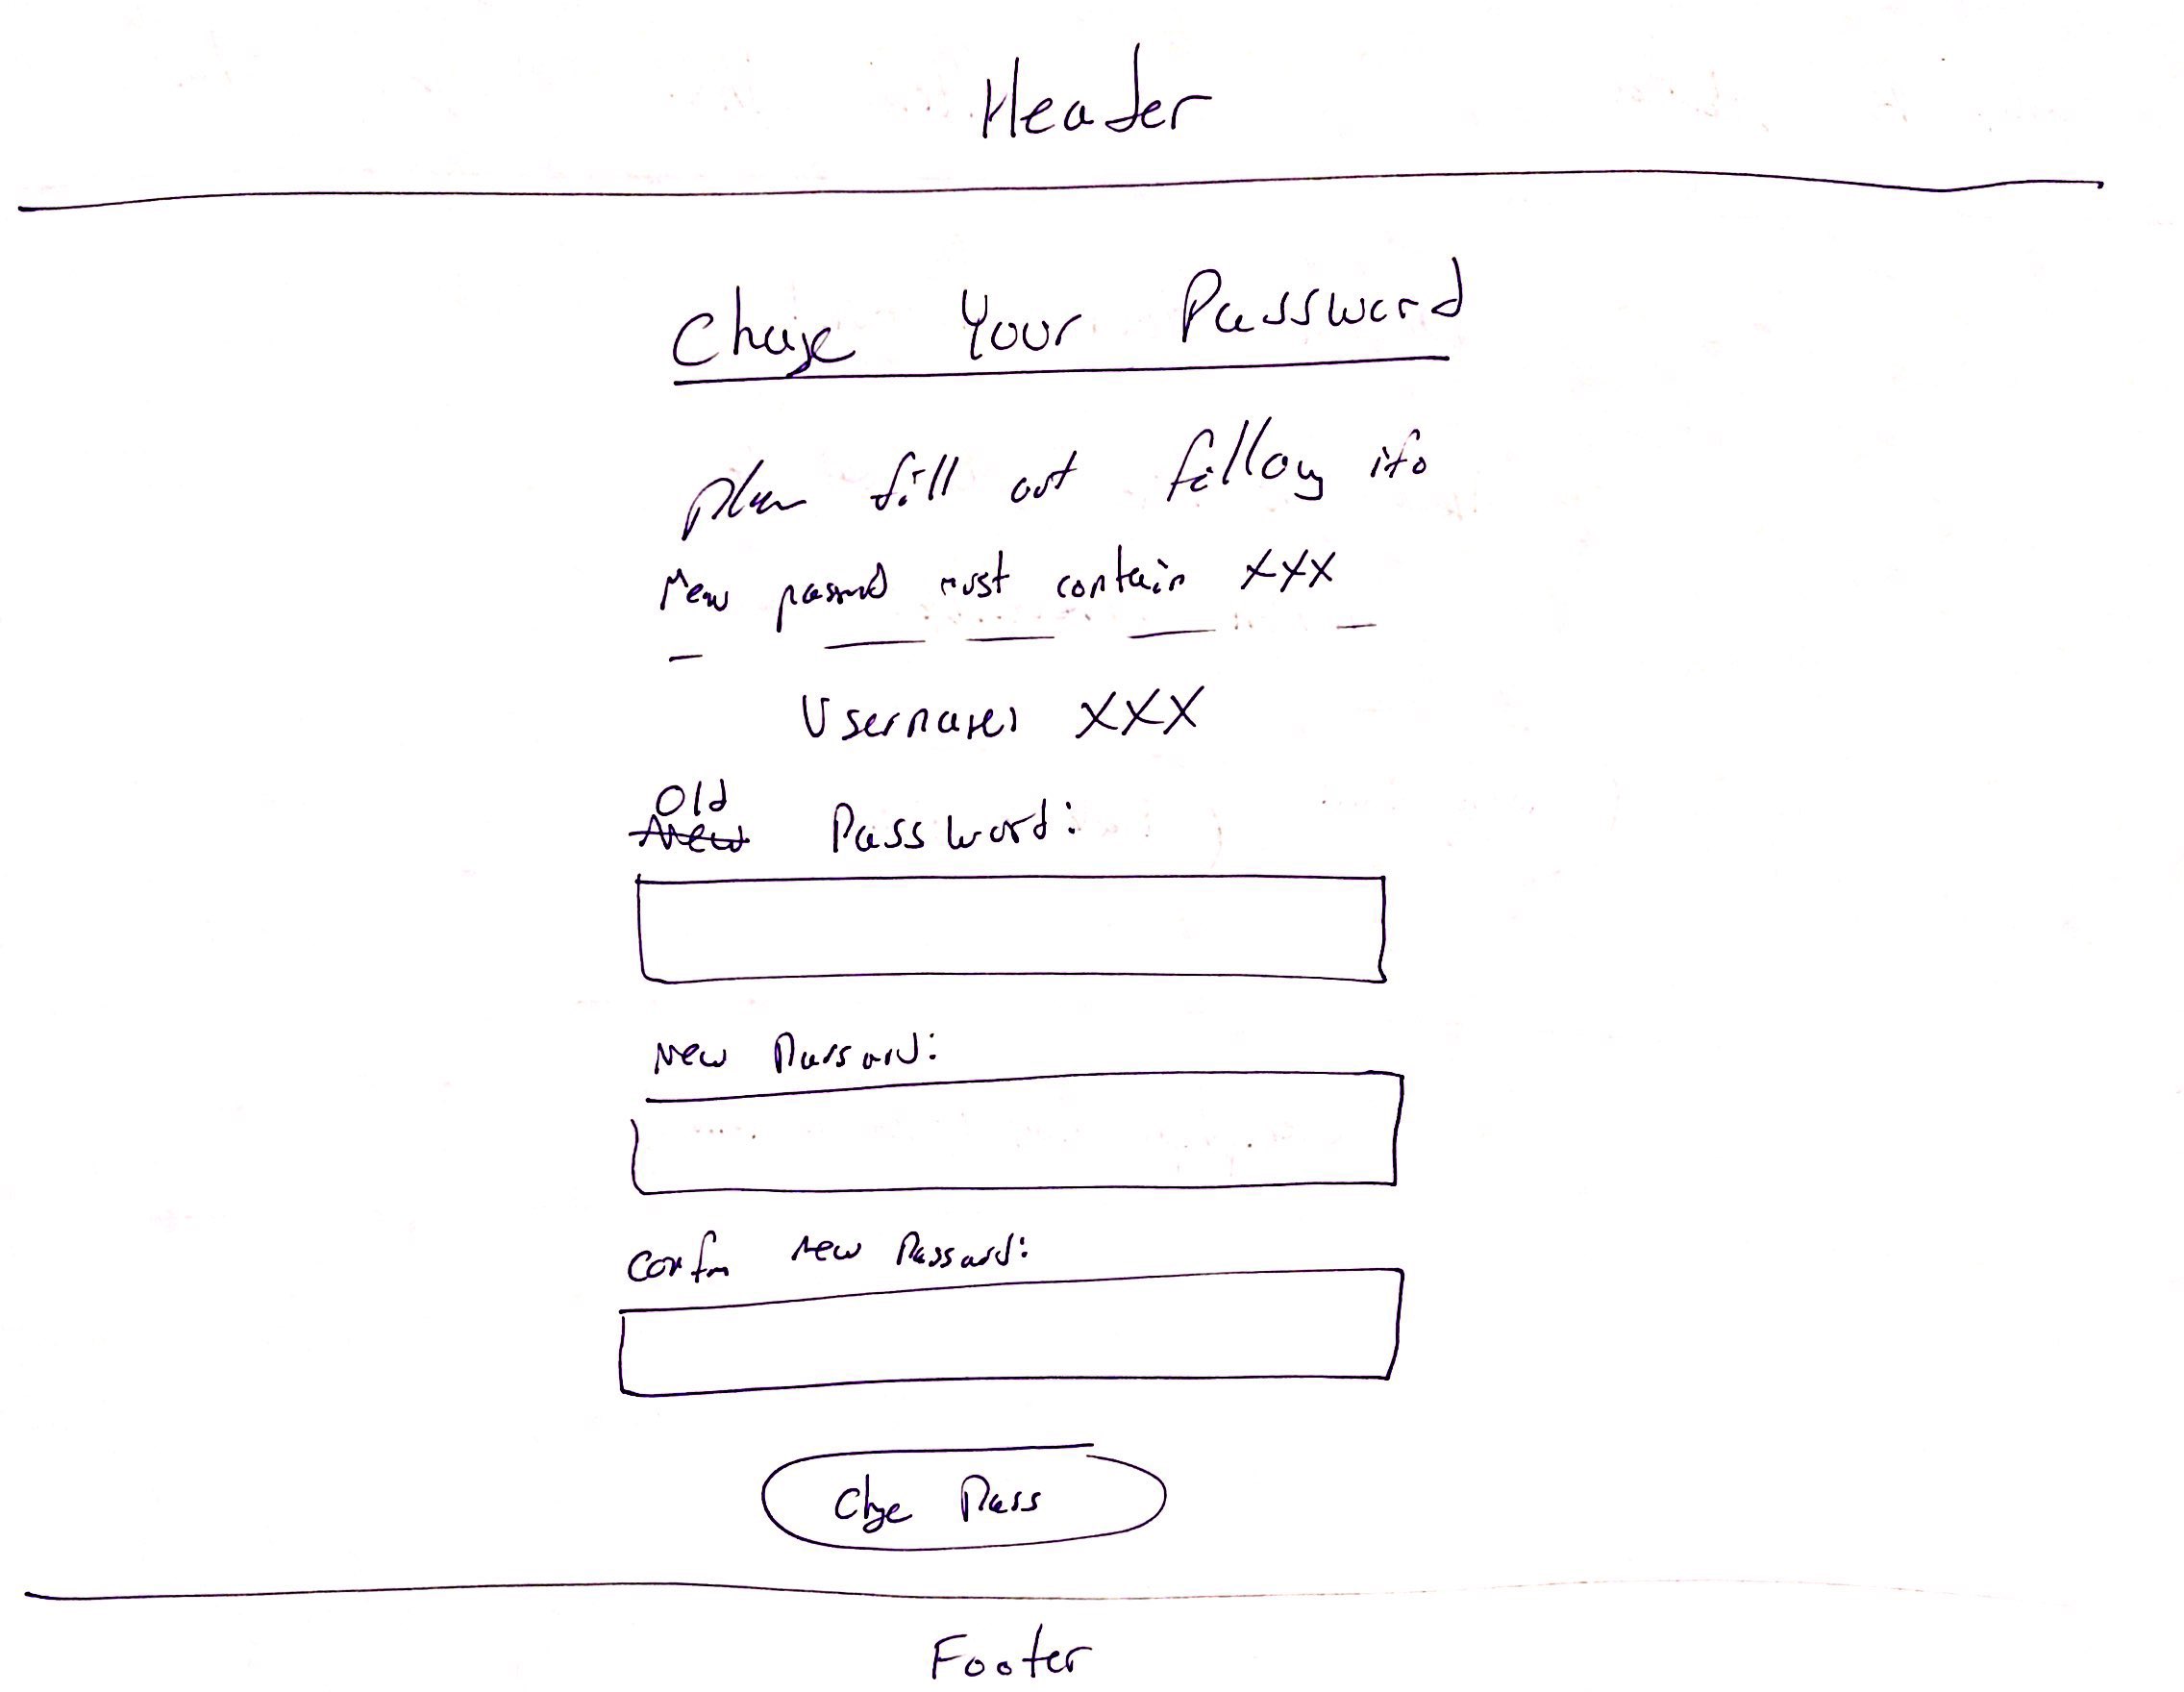 Header
Change Your Password
Please fill out following info
New password must contain XXX
Username: XXX
Old
New Password:
New Password:
Confirm New Password:
Chge Pass
Footer